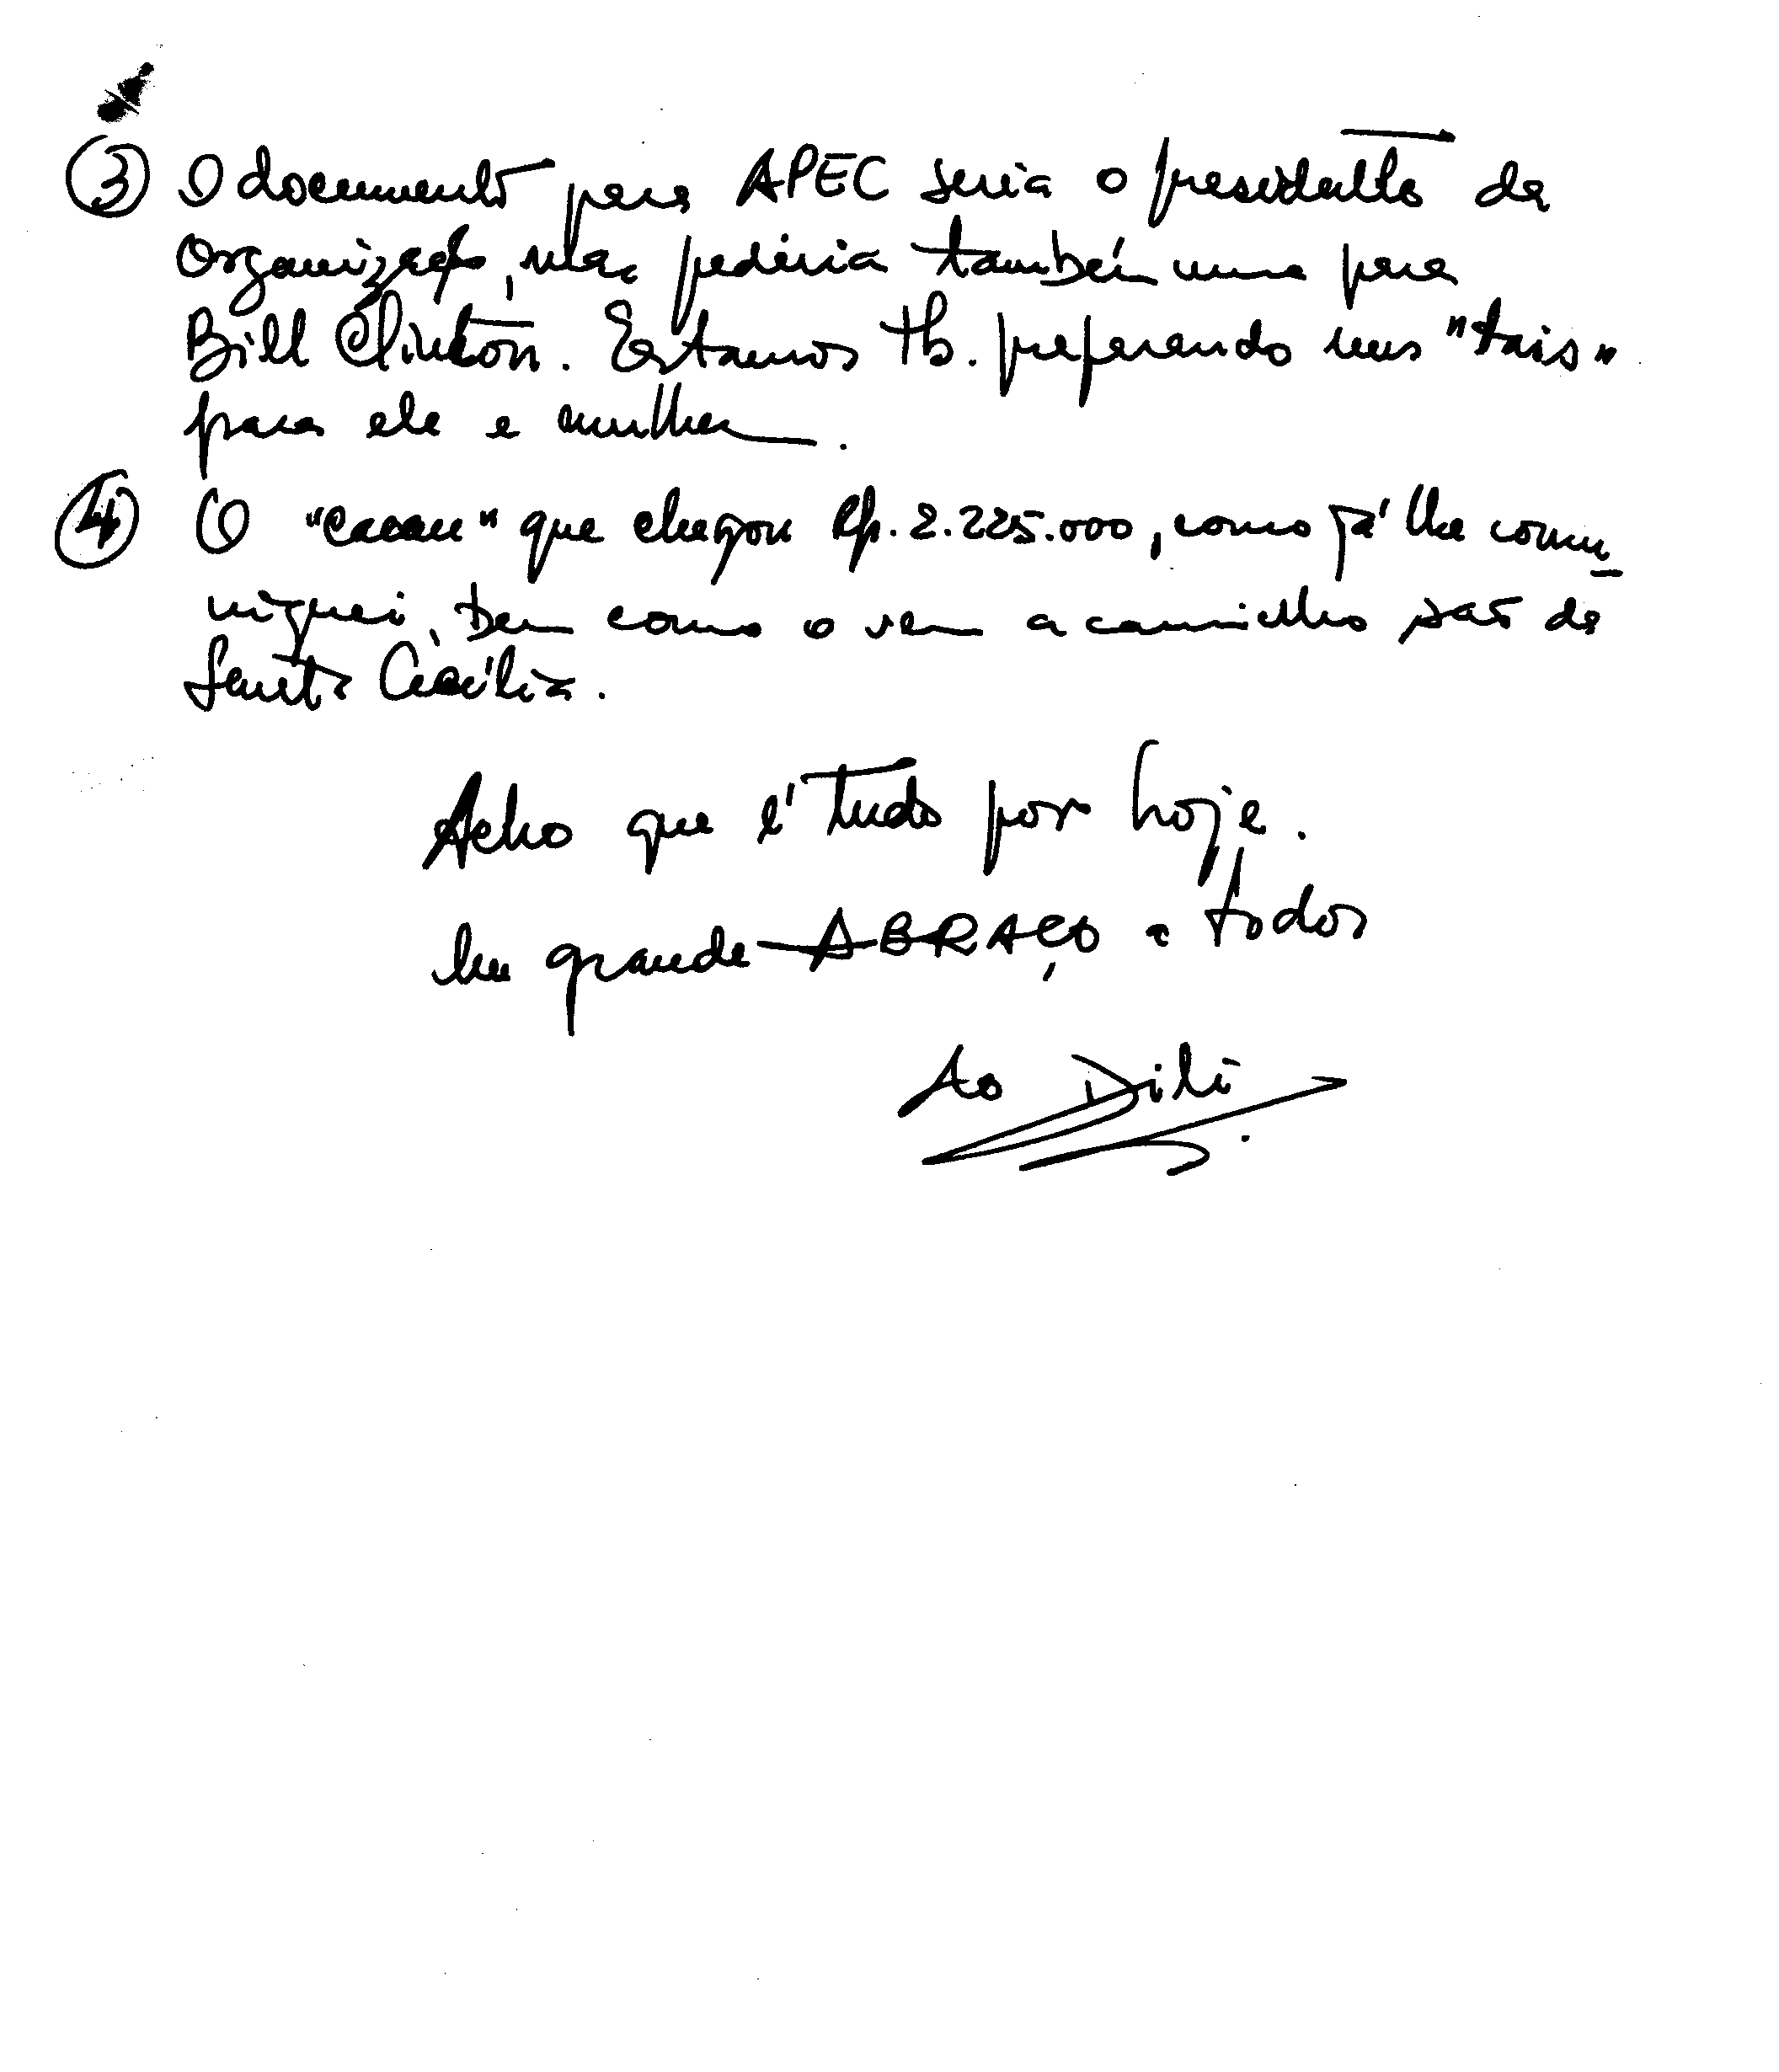 ③ O documento para APEC seria o presidente da
Organização, mas pediria também uma para
Bill Clinton. Estamos tb. preparando uns "tais"
para ele e mulher.
④ O "cacau" que chegou Rp. 2.225.000, como já lhe comu
niquei, bem como o vem a caminho são de
Santa Cecília.
Acho que é tudo por hoje.
Um grande ABRAÇO a todos
Dili